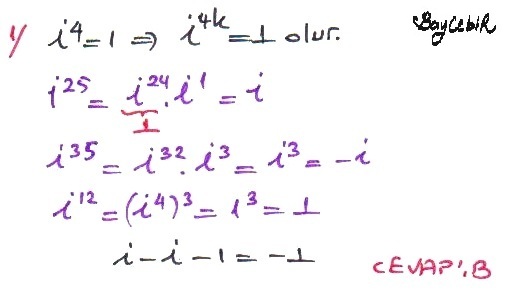 1) i⁴ = 1 ⇒ i⁴ᵏ = 1 olur.
BayCebiR
i²⁵ = i²⁴ . i¹ = i
1
i³⁵ = i³² . i³ = i³ = -i
i¹² = (i⁴)³ = 1³ = 1
i - i - 1 = -1
CEVAP: B